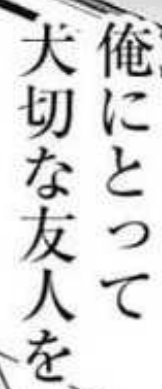 俺にとって
大切な友人を